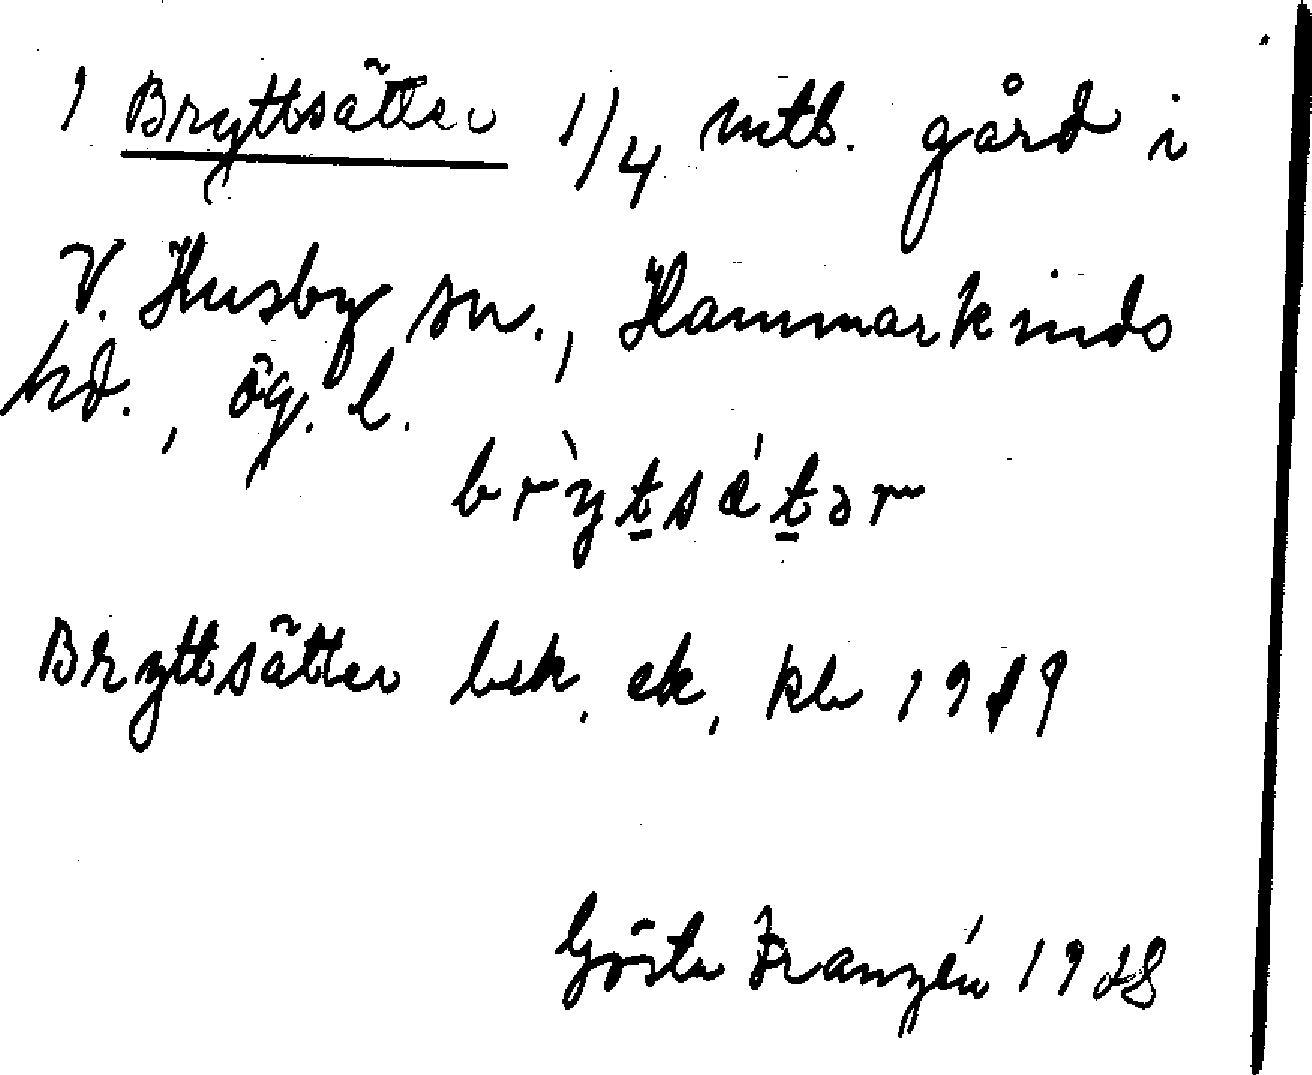 1 Bryttsätter 1/4 mtl. gård i
V. Husby sn., Hammarkinds
hd., Ög. l.
br`ytsä́tər
Bryttsätter bek. ek. kb 1919
Gösta Franzén 1928